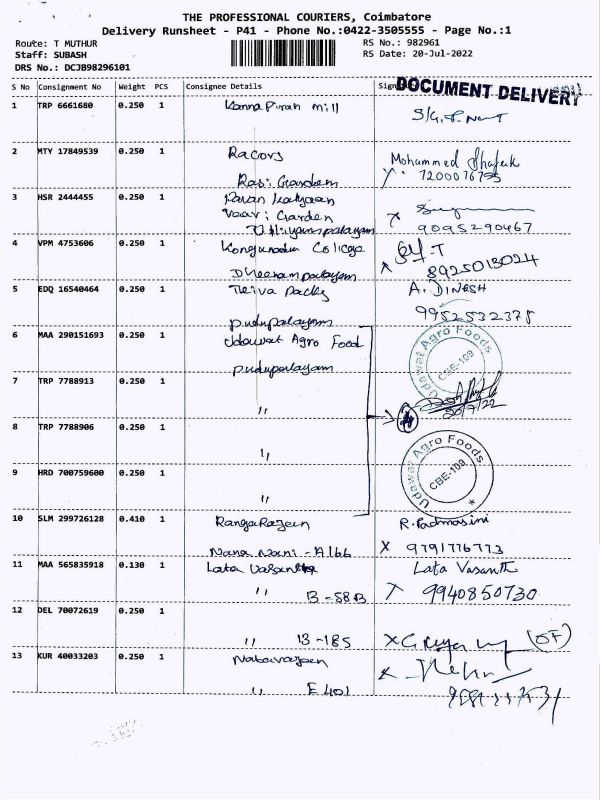 THE PROFESSIONAL COURIERS, Coimbatore
Delivery Runsheet - P41 - Phone No.:0422-3505555 - Page No.:1
Route: T MUTHUR
RS No.: 982961
Staff: SUBASH
RS Date: 20-Jul-2022
DRS No.: DCJB98296101
S No Consignment No Weight PCS Consignee Details
DOCUMENT DELIVERY
1 TRP 6661680 0.250 1 mill
2 MTY 17849539 0.250 1 Racors Mohammed
Rasi Garden 7200076795
3 HSR 2444455 0.250 1
Garden
9095290467
4 VPM 4753606 0.250 1 Kongunadu College
8925013024
5 EDQ 16540464 0.250 1 Teiva Packs A. DINESH
pudupalayam 9952532378
6 MAA 290151693 0.250 1 Udawat Agro Food
pudupalayam
Udawat Agro Foods CBE-109
7 TRP 7788913 0.250 1
" 20/7/22
8 TRP 7788906 0.250 1
"
Udawat Agro Foods CBE-109
9 HRD 700759600 0.250 1
"
10 SLM 299726128 0.410 1 R. Padmasini
Nana Nani - A166 X 9791776773
11 MAA 565835918 0.130 1 Lata Vasanth Lata Vasanth
" B-58B 9940850730
12 DEL 70072619 0.250 1
" 13-185
13 KUR 40033203 0.250 1
" E 401